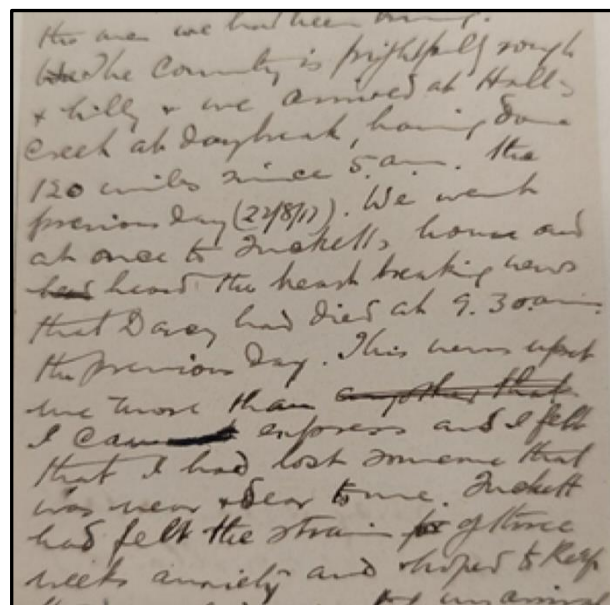 the area we had been
The Country is frightfully rough
& hilly & we arrived at Halls
Creek at daybreak, having done
120 miles since 5. a.m. the
previous day (22/8/17). We went
at once to Tucketts house and
had heard the heart breaking news
that Darcy had died at 9.30 am
the previous day. This news upset
me more than any other that
I can express and I felt
that I had lost someone that
was near & dear to me. Tuckett
had felt the strain of three
weeks anxiety and hoped to keep